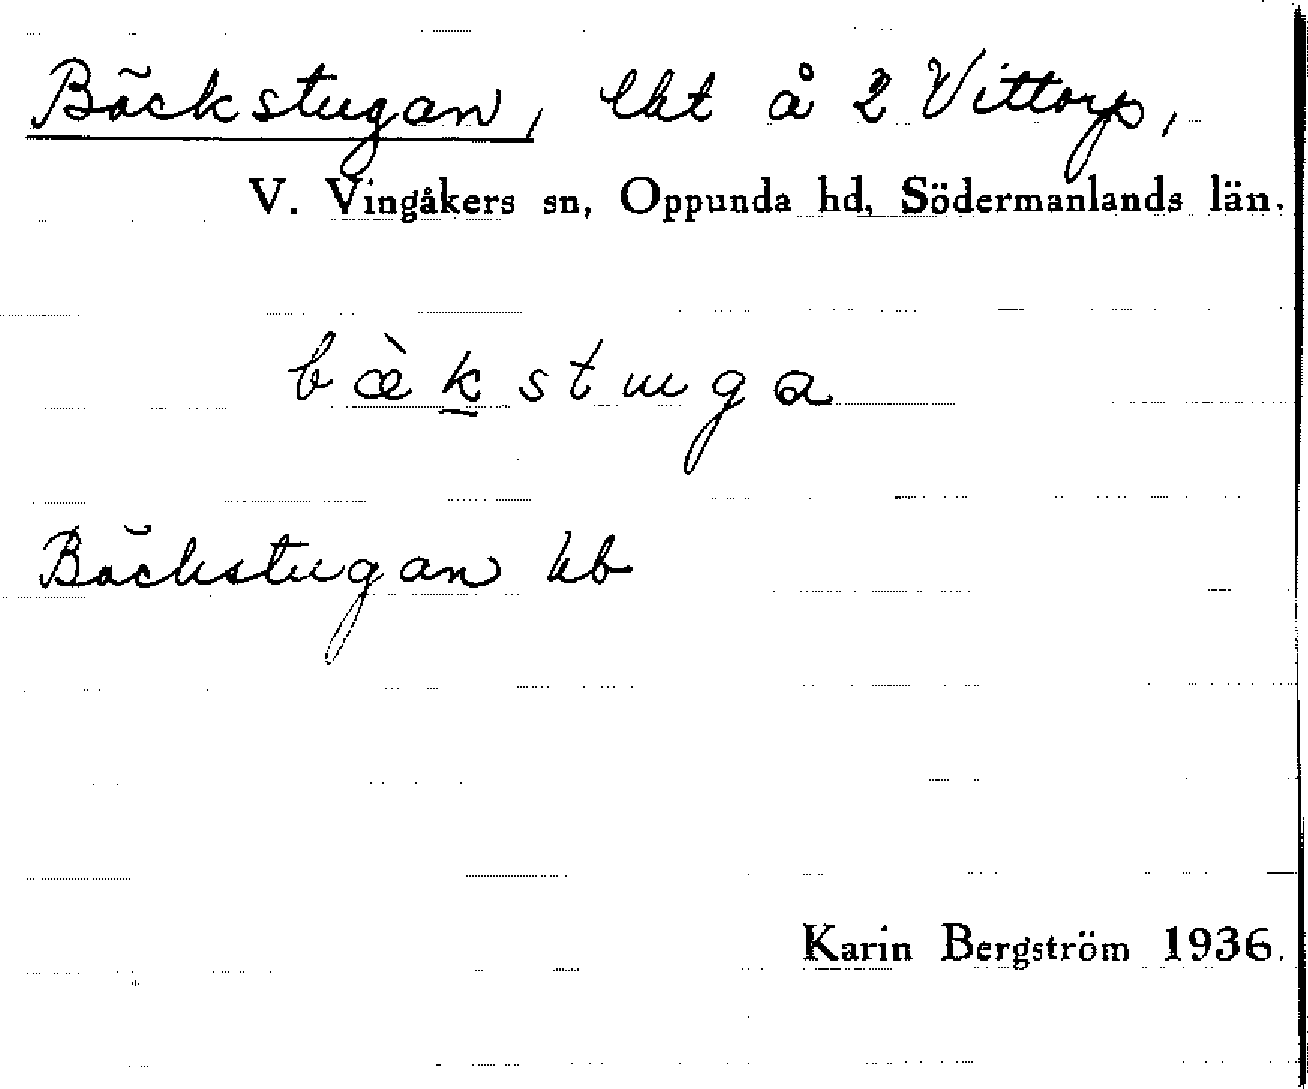 Bäckstugan, lht å 2 Vittorp,
V. Vingåkers sn, Oppunda hd, Södermanlands län.
bæ̀kstuga
Bäckstugan kb
Karin Bergström 1936.